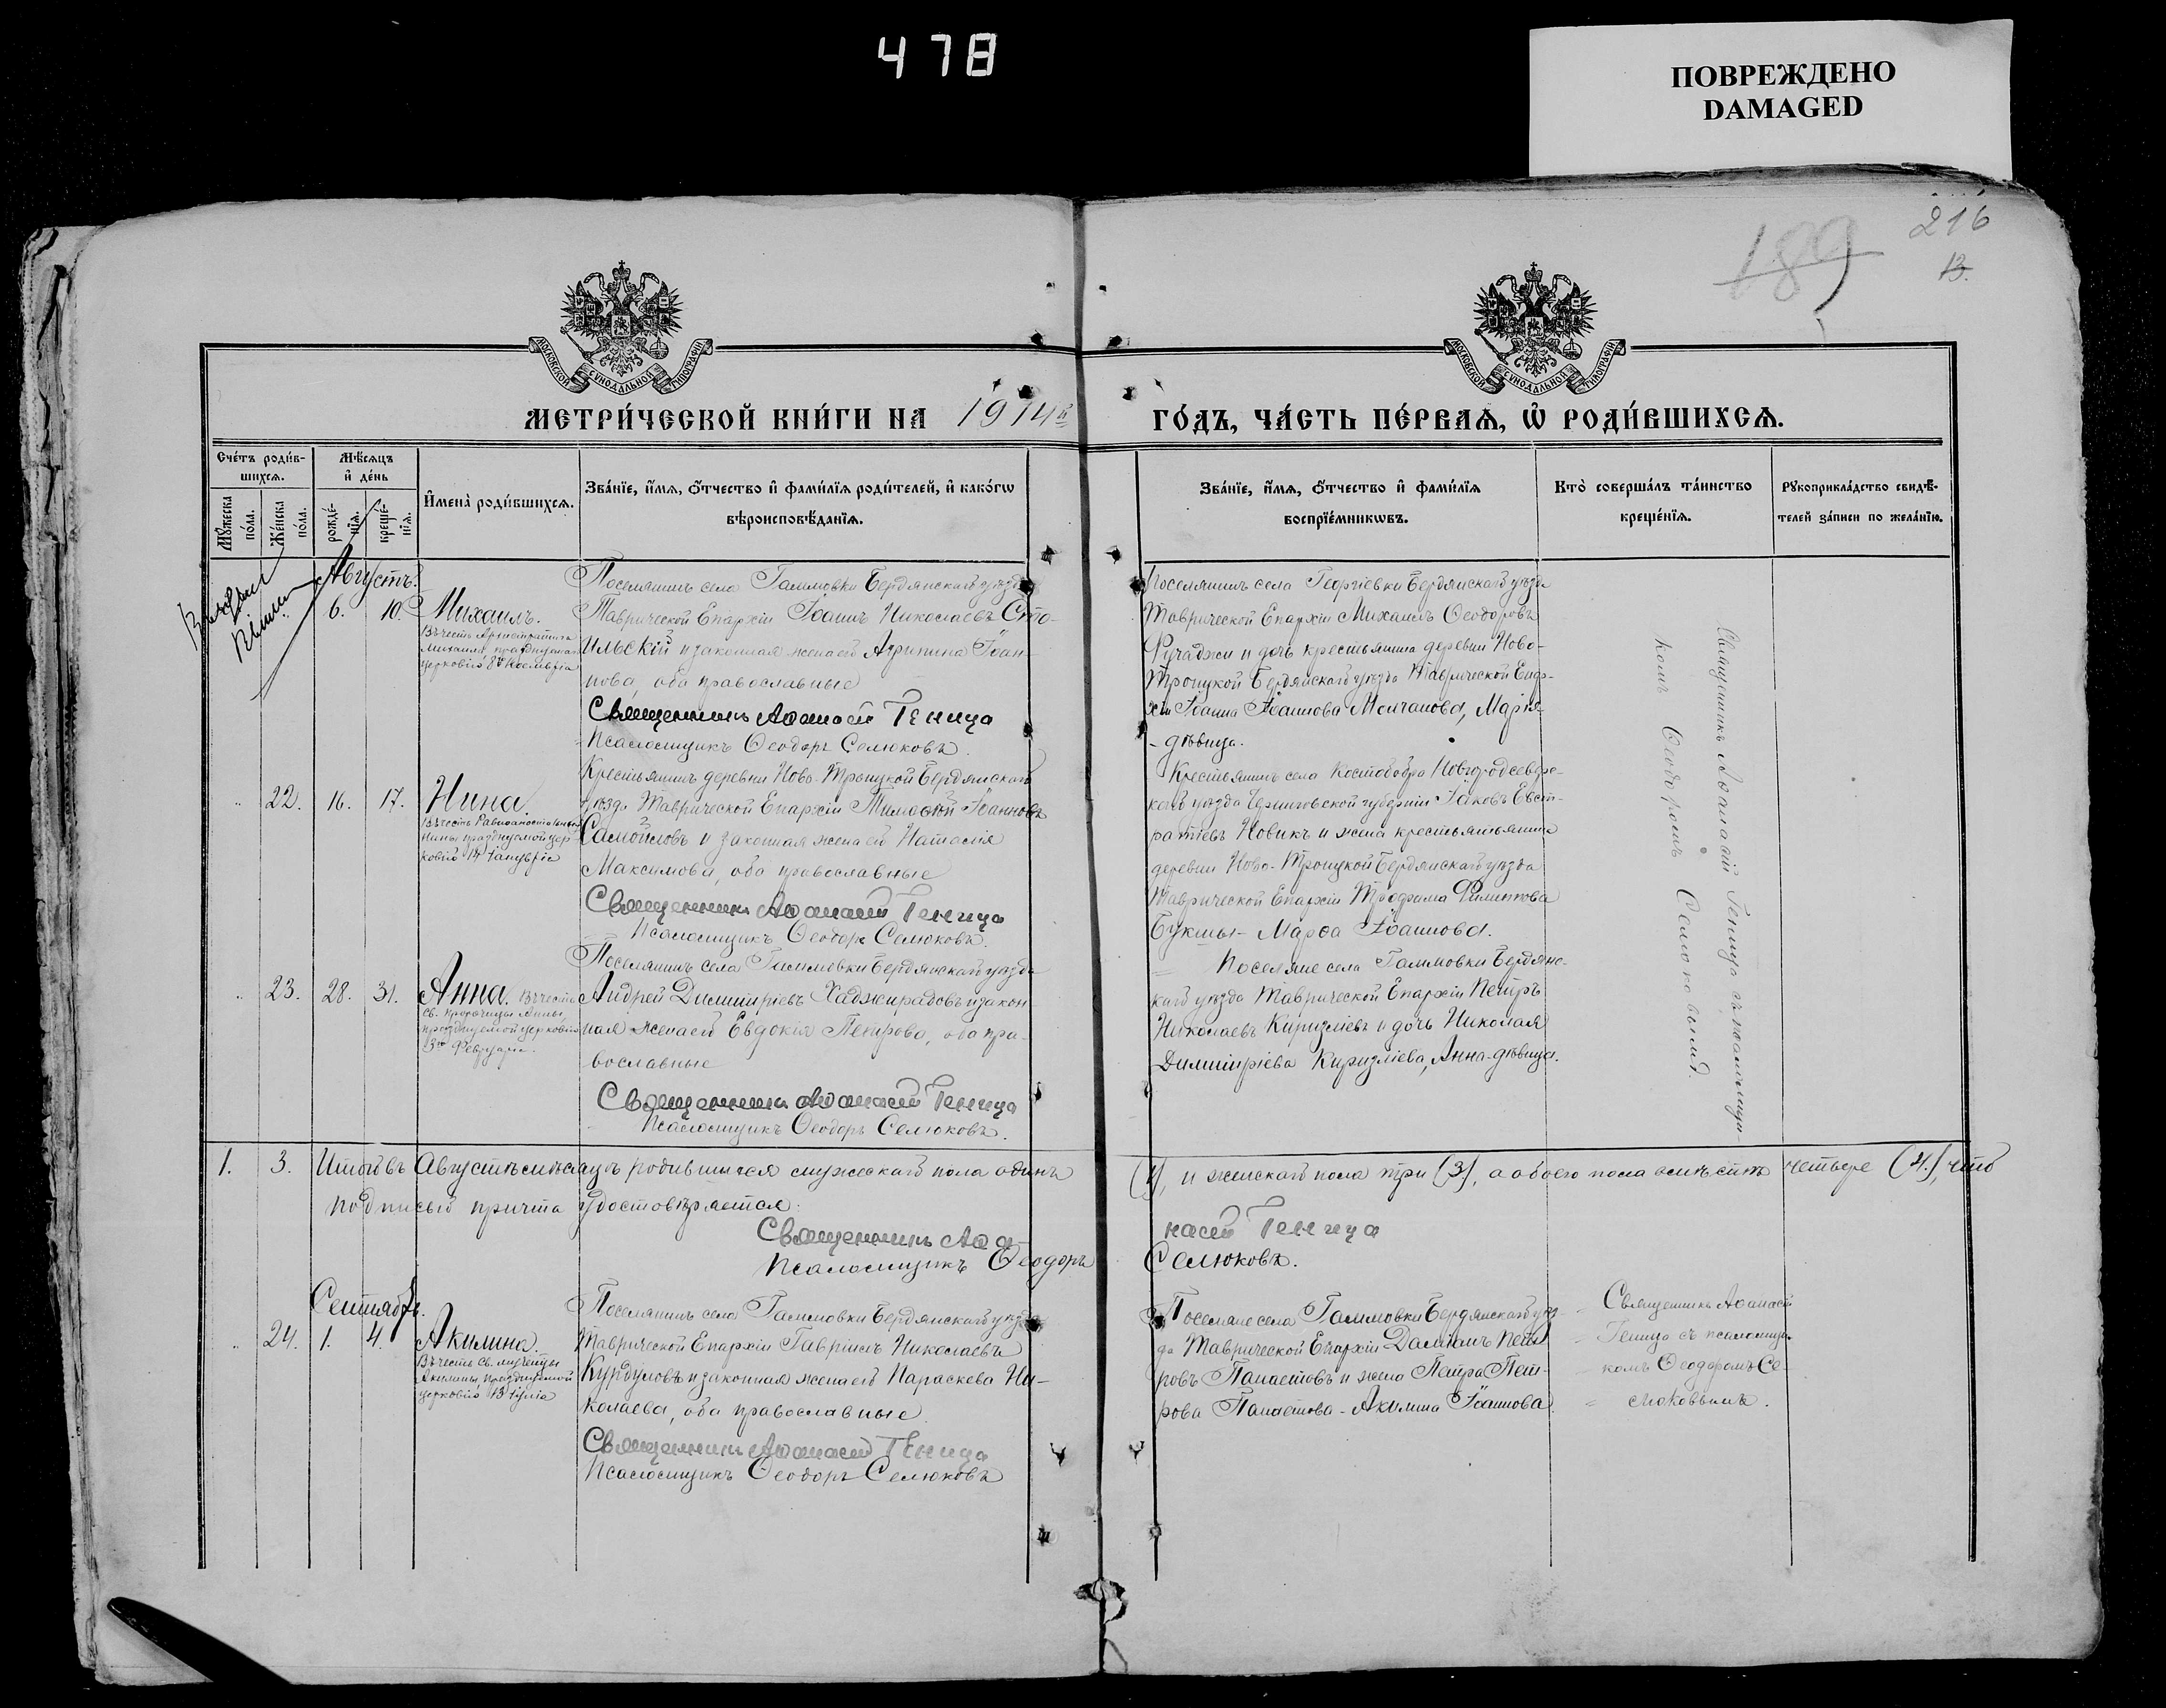 478
ПОВРЕЖДЕНО
DAMAGED
216
189
13.
МОСКОВСКОЙ СѴНОДАЛЬНОЙ ТИПОГРАФІИ
МОСКОВСКОЙ СѴНОДАЛЬНОЙ ТИПОГРАФІИ
МЕТРИ́ЧЕСКОЙ КНИ́ГИ НА 1914й
ГО́ДЪ, ЧА́СТЬ ПЕ́РВАѦ, Ѡ҆ РОДИ́ВШИХСѦ.
Сче́тъ роди́в-
шихсѧ.
Мꙋ́жеска по́ла.
Же́нска по́ла.
Мѣ́сѧцъ
и҆ де́нь
рожде́-
нїѧ.
креще́-
нїѧ.
И҆мена̀ роди́вшихсѧ.
Зва́нїе, и҆́мѧ, ѻ҆́тчество и҆ фами́лїѧ роди́телей, и҆ како́гѡ
вѣроисповѣ́данїѧ.
Зва́нїе, и҆́мѧ, ѻ҆́тчество и҆ фами́лїѧ
воспрїе́мникѡвъ.
Кто̀ соверша́лъ та́инство
креще́нїѧ.
Рꙋкоприкла́дство свидѣ́-
телей за́писи по жела́нїю.
Августъ.
6. 10. Михаилъ.
Въ честь Архистратига
Михаила, празднуемаго
церковію 8го Ноября
Поселянинъ села Гаммовки Бердянскаго уѣзда
Таврической Епархіи Іоаннъ Николаевъ Сто-
ильскій и законная жена его Агрипина Іоан-
нова, оба православные
Священникъ Аѳанасій Геница
Псаломщикъ Ѳеодоръ Селюковъ.
Поселянинъ села Георгіевки Бердянскаго уѣзда
Таврической Епархіи Михаилъ Ѳеодоровъ
и дочь крестьянина деревни Ново-
Троицкой Бердянскаго уѣзда Таврической Епар-
хіи Іоанна Іоаннова Молчанова, Марія-
дѣвица.
" 22. 16. 17. Нина
Въ честь Равноапостольныя
Нины празднуемой цер-
ковію 14 Іануарія
Крестьянинъ деревни Ново-Троицкой Бердянскаго
уѣзда Таврической Епархіи Тимоѳей Іоанновъ
Самойловъ и законная жена его Наталія
Максимова, оба православные
Священникъ Аѳанасій Геница
Псаломщикъ Ѳеодоръ Селюковъ.
Крестьянинъ села Костобобра Новгородсѣверс-
каго уѣзда Черниговской губерніи Іаковъ Евст-
ратіевъ Новикъ и жена крестьянина
деревни Ново-Троицкой Бердянскаго уѣзда
Таврической Епархіи Трофима Филиппова
Букши - Марѳа Іоаннова.
" 23. 28. 31. Анна. Въ честь
св. пророчицы Анны,
празднуемой церковію
3го Февруарія.
Поселянинъ села Гаммовки Бердянскаго уѣзда
Андрей Димитріевъ Хаджирадовъ и закон-
ная жена его Евдокія Петрова, оба пра-
вославные
Священникъ Аѳанасій Геница
Псаломщикъ Ѳеодоръ Селюковъ.
Поселяне села Гаммовки Бердянс-
каго уѣзда Таврической Епархіи Петръ
Николаевъ Киризліевъ и дочь Николая
Димитріева Киризліева, Анна-дѣвица.
Священникъ Аѳанасій Геница съ псаломщи-
комъ Ѳеодоромъ Селюковымъ.
1. 3. Итого въ Августѣ мѣсяцѣ родившихся мужескаго пола одинъ
(1), и женскаго пола три (3), а обоего пола вмѣстѣ четыре (4), что
подписью причта удостовѣряется.
Священникъ Аѳа-
насій Геница
Псаломщикъ Ѳеодоръ
Селюковъ.
Сентябрь.
" 24. 1. 4. Акилина.
Въ честь св. мученицы
Акилины, празднуемой
церковію 13 Іунія
Поселянинъ села Гаммовки Бердянскаго уѣзда
Таврической Епархіи Гавріилъ Николаевъ
Курдуловъ и законная жена его Параскева Ни-
колаева, оба православные.
Священникъ Аѳанасій Геница
Псаломщикъ Ѳеодоръ Селюковъ
Поселяне села Гаммовки Бердянскаго уѣз-
да Таврической Епархіи Даміанъ Пет-
ровъ Панаетовъ и жена Петра Пет-
рова Панаетова - Акилина Іоаннова
Священникъ Аѳанасій
Геница съ псаломщи-
комъ Ѳеодоромъ Се-
люковымъ.